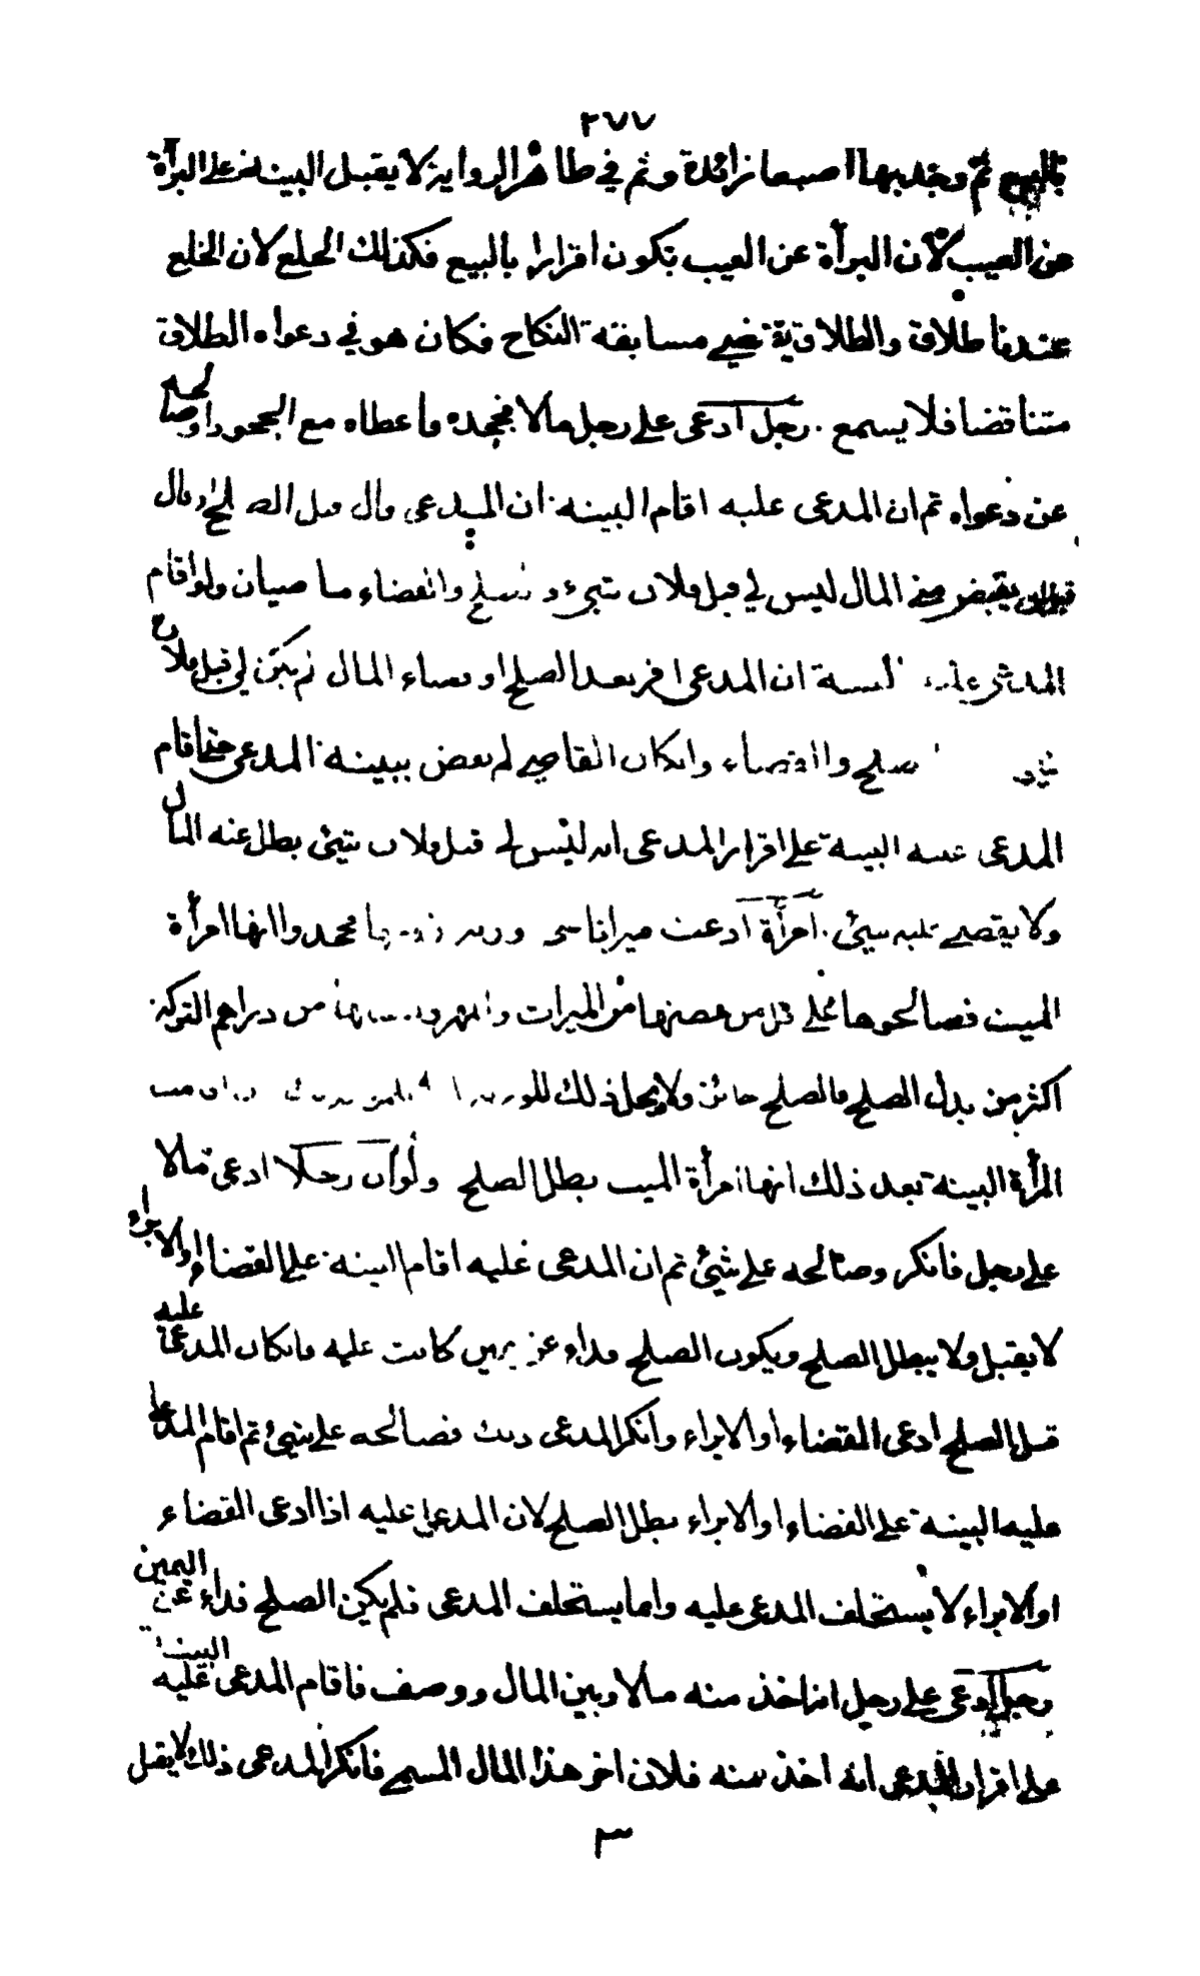 ٢٧٧
بالبيع ثم وجد بها اصبعا زائدة وثم في ظاهر الرواية لا يقبل البينة على البرأة
عن العيب لان البرأة عن العيب تكون اقرارا بالبيع فكذلك الخلع لان الخلع
عندنا طلاق والطلاق يقتضي مسابقة النكاح فكان هو في دعواه الطلاق
متناقضا فلا يسمع . رجل ادعى على رجل مالا فجحده فاعطاه مع الجحود او صالحه
عن دعواه ثم ان المدعى عليه اقام البينة ان المدعى قال قبل الصلح او قال
قبل ان يقبض مني المال ليس لي قبل فلان شيء والقضاء ماضيان ولو اقام
المدعى عليه البينة ان المدعى اقر بعد الصلح او قضاء المال لم يكن لي قبل فلان
شيء الصلح والقضاء وان كان القاضي لم يقض ببينة المدعى حتى اقام
المدعى عليه البينة على اقرار المدعى انه ليس لي قبل فلان شيئ بطل عنه المال
ولا يقضي عليه بشيئ . امرأة ادعت ميراثا محمدوا انها امرأة
الميت فصالحوها على اقل من حصتها من الميراث والمهر من دراهم التركة
اكثر من بدل الصلح فالصلح جائز ولا يحل ذلك للورثة
المرأة البينة بعد ذلك انها امرأة الميت بطل الصلح ولو ان رجلا ادعى مالا
على رجل فانكر وصالحه على شيئ ثم ان المدعى عليه اقام البينة على القضاء او الابراء
لا يقبل ولا يبطل الصلح ويكون الصلح فداء عن يمين كانت عليه فان كان المدعى عليه
قبل الصلح ادعى القضاء او الابراء وانكر المدعى ذلك فصالحه على شيئ ثم اقام المدعى
عليه البينة على القضاء او الابراء بطل الصلح لان المدعى عليه اذا ادعى القضاء
او الابراء لا يستحلف المدعى عليه وانما يستحلف المدعى فلم يكن الصلح فداء عن اليمين
رجل ادعى على رجل انه اخذ منه مالا وبين المال ووصف فاقام المدعى عليه البينة
على اقرار المدعى انه اخذ منه فلان اخر هذا المال المسمى فانكر المدعى ذلك لا يقبل
٣